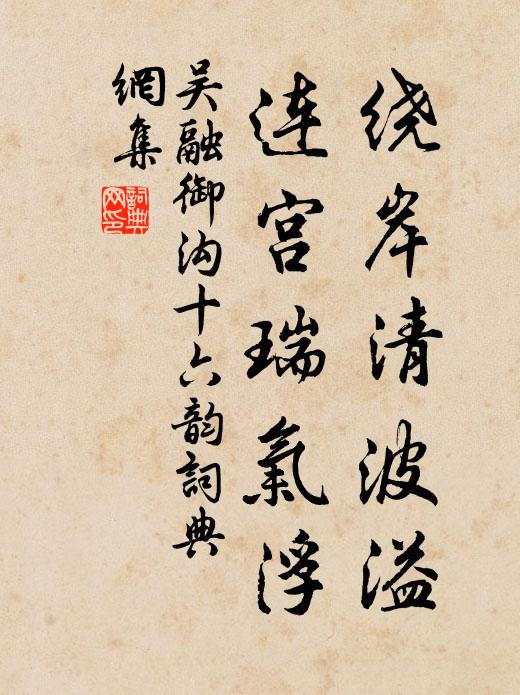 绕岸清波溢
连宫瑞氣浮
吴融御沟十六韵詞典
網集
詞典
网印